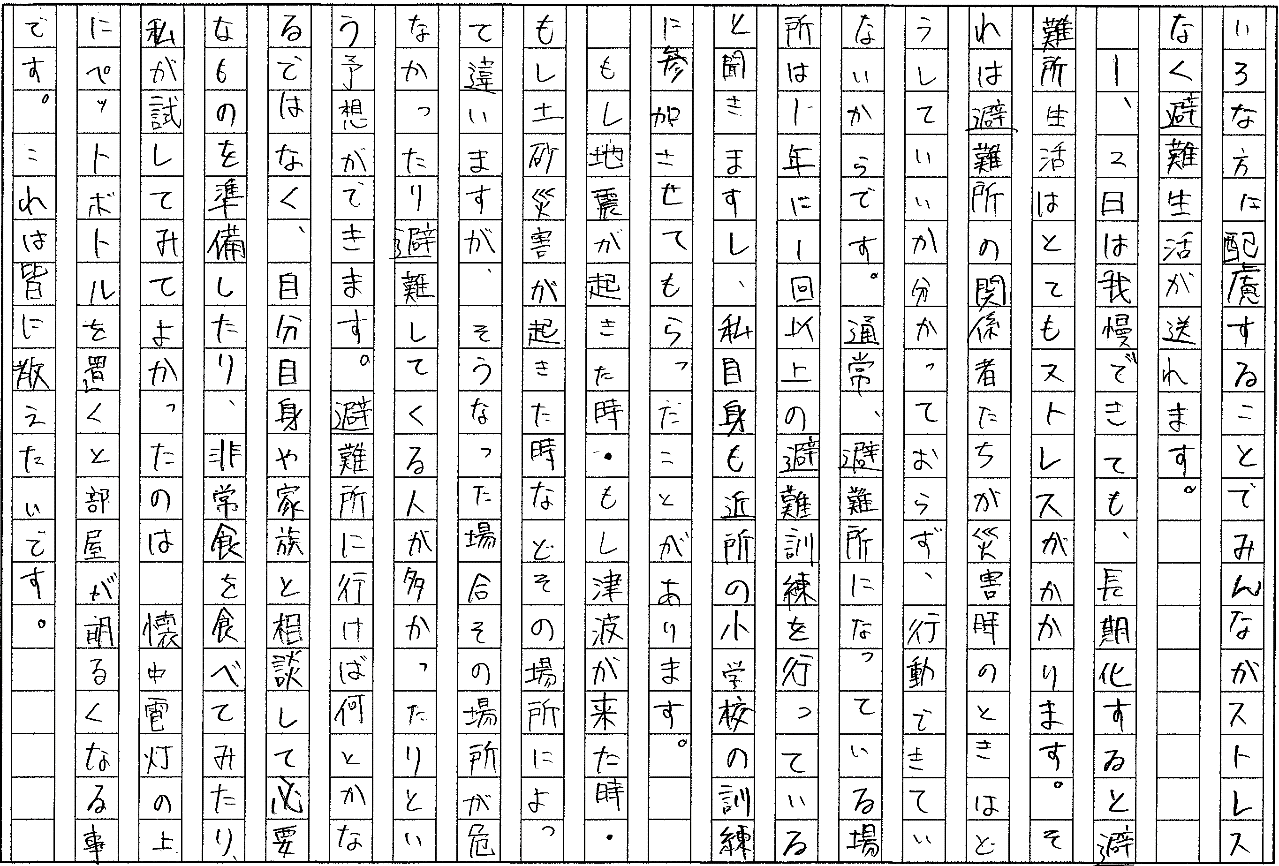 いろな方に配慮することでみんながストレス
なく避難生活が送れます。
　１、２日は我慢できても、長期化すると避
難所生活はとてもストレスがかかります。そ
れは避難所の関係者たちが災害時のときはど
うしていいか分かっておらず、行動できてい
ないからです。通常、避難所になっている場
所は１年に１回以上の避難訓練を行っている
と聞きますし、私自身も近所の小学校の訓練
に参加させてもらったことがあります。
　もし地震が起きた時・もし津波が来た時・
もし土砂災害が起きた時などその場所によっ
て違いますが、そうなった場合その場所が危
なかったり避難してくる人が多かったりとい
う予想ができます。避難所に行けば何とかな
るではなく、自分自身や家族と相談して必要
なものを準備したり、非常食を食べてみたり、
私が試してみてよかったのは　懐中電灯の上
にペットボトルを置くと部屋が明るくなる事
です。これは皆に教えたいです。